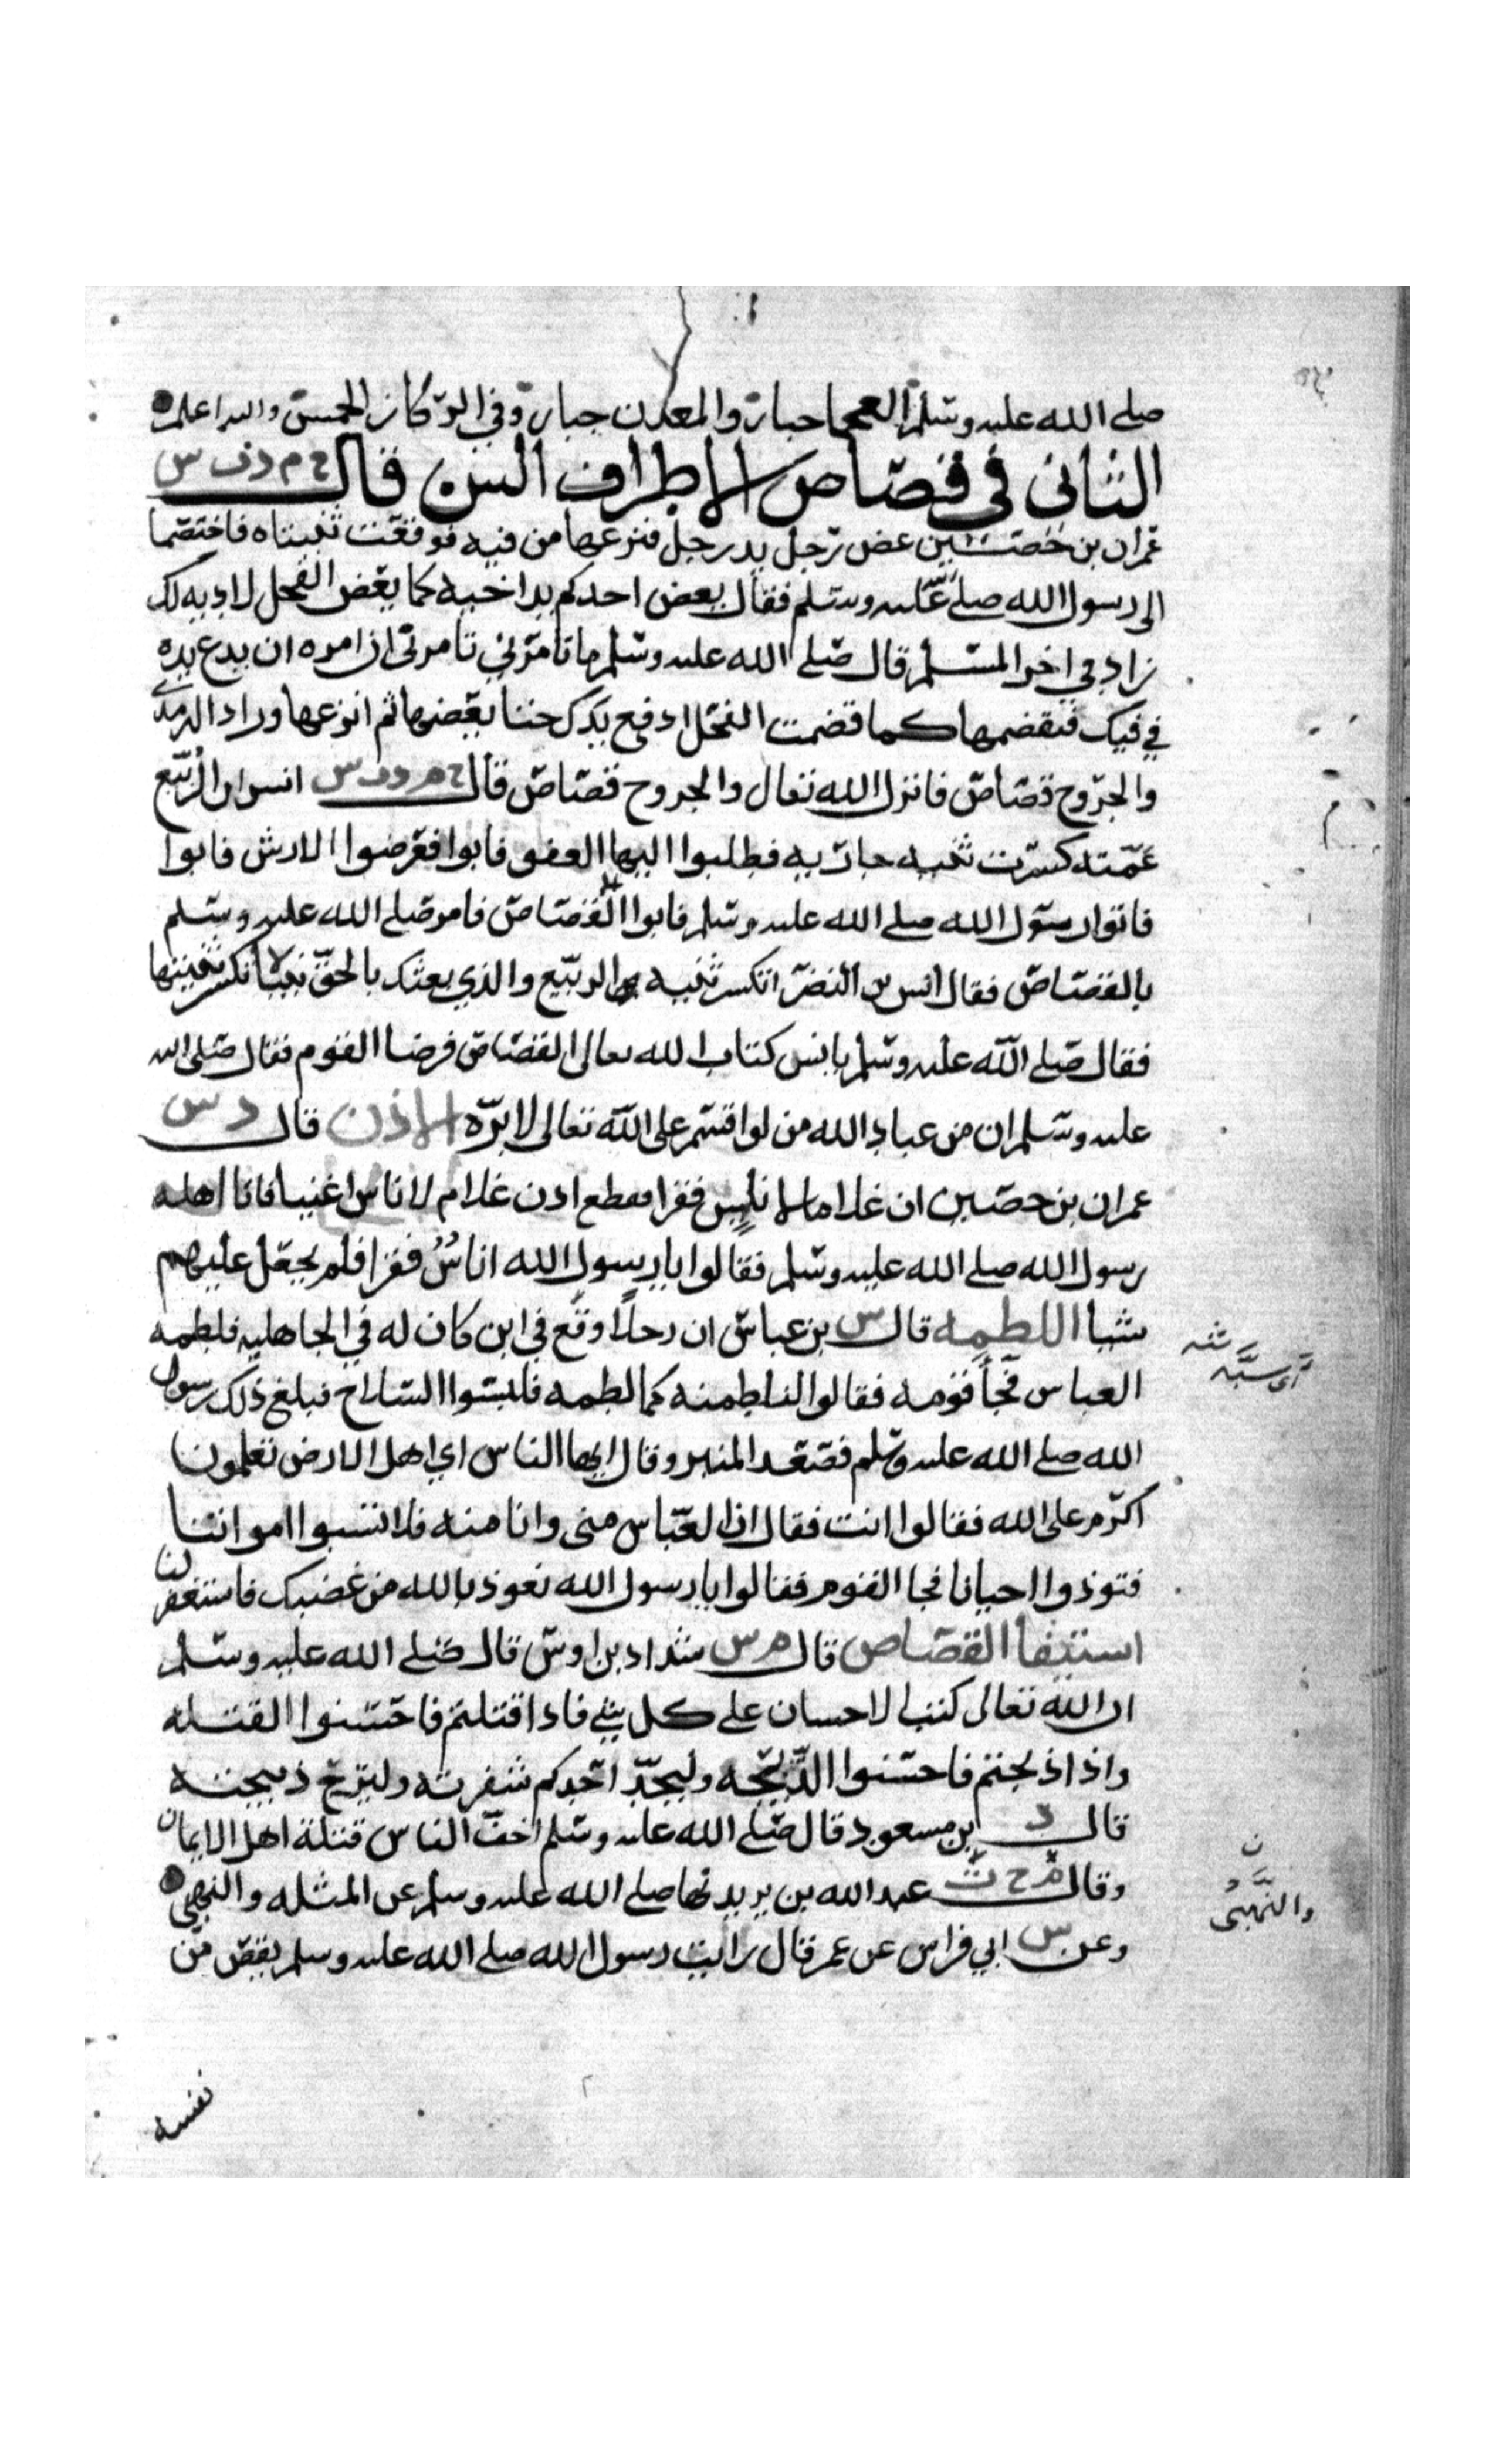 صلى الله عليه وسلم العجما جبار والمعدن جبار وفي الركاز الخمس والله اعلم
الثاني في قصاص الاطراف السن قال خ م د ت س
عمران بن حصين عض رجل يد رجل فنزعها من فيه فوقعت ثنيتاه فاختصما
الى رسول الله صلى عليه وسلم فقال يعض احدكم يد اخيه كما يعض الفحل لا دية لك
زاد في اخر المسلم قال صلى الله عليه وسلم ما تامرني تامرني ان امره ان يدع يده
في فيك فتقضمها كما قضمت الفحل ادفع يدك حتى يقضمها ثم انزعها وزاد الترمذي
والجروح قصاص فانزل الله تعالى والجروح قصاص قال خ م د س انس ان الربيع
عمته كسرت ثنية جارية فطلبوا اليها العفو فابوا فعرضوا الارش فابوا
فاتوا رسول الله صلى الله عليه وسلم فابوا الا القصاص فامر صلى الله عليه وسلم
بالقصاص فقال انس بن النضر اتكسر ثنية الربيع والذي بعثك بالحق نبيا لا تكسر ثنيتها
فقال صلى الله عليه وسلم يا نس كتاب الله تعالى القصاص فرضا القوم فقال صلى الله
عليه وسلم ان من عباد الله من لو اقسم على الله تعالى لابره الاذن قال د س
عمران بن حصين ان غلاما لاناس فقرا قطع اذن غلام لاناس اغنيا فاتا اهله
رسول الله صلى الله عليه وسلم فقالوا يا رسول الله اناس فقرا فلم يجعل عليهم
شيا اللطمه قال س بن عباس ان رجلا وقع في ابن كان له في الجاهلية فلطمه
العباس فجأ قومه فقالوا لنلطمنه كما لطمه فلبسوا السلاح فبلغ ذلك رسول
الله صلى الله عليه وسلم فصعد المنبر وقال ايها الناس اي اهل الارض تعلمون
اكرم على الله فقالوا انت فقال ان العباس مني وانا منه فلا تسبوا امواتنا
فتوذوا احيانا فجا القوم فقالوا يا رسول الله نعوذ بالله من غضبك فاستغفر لنا
استيفا القصاص قال م س شداد بن اوس قال صلى الله عليه وسلم
ان الله تعالى كتب الاحسان على كل شي فاذا قتلتم فاحسنوا القتله
واذا ذبحتم فاحسنوا الذبحه وليحد احدكم شفرته وليرح ذبيحته
قال د ابن مسعود قال صلى الله عليه وسلم اخف الناس قتلة اهل الايمان
وقال عبد الله بن يزيد نها صلى الله عليه وسلم عن المثله والنهبي
وعن س ابي فراس عن عمر قال رايت رسول الله صلى الله عليه وسلم يقص من
والنهبى
نفسه